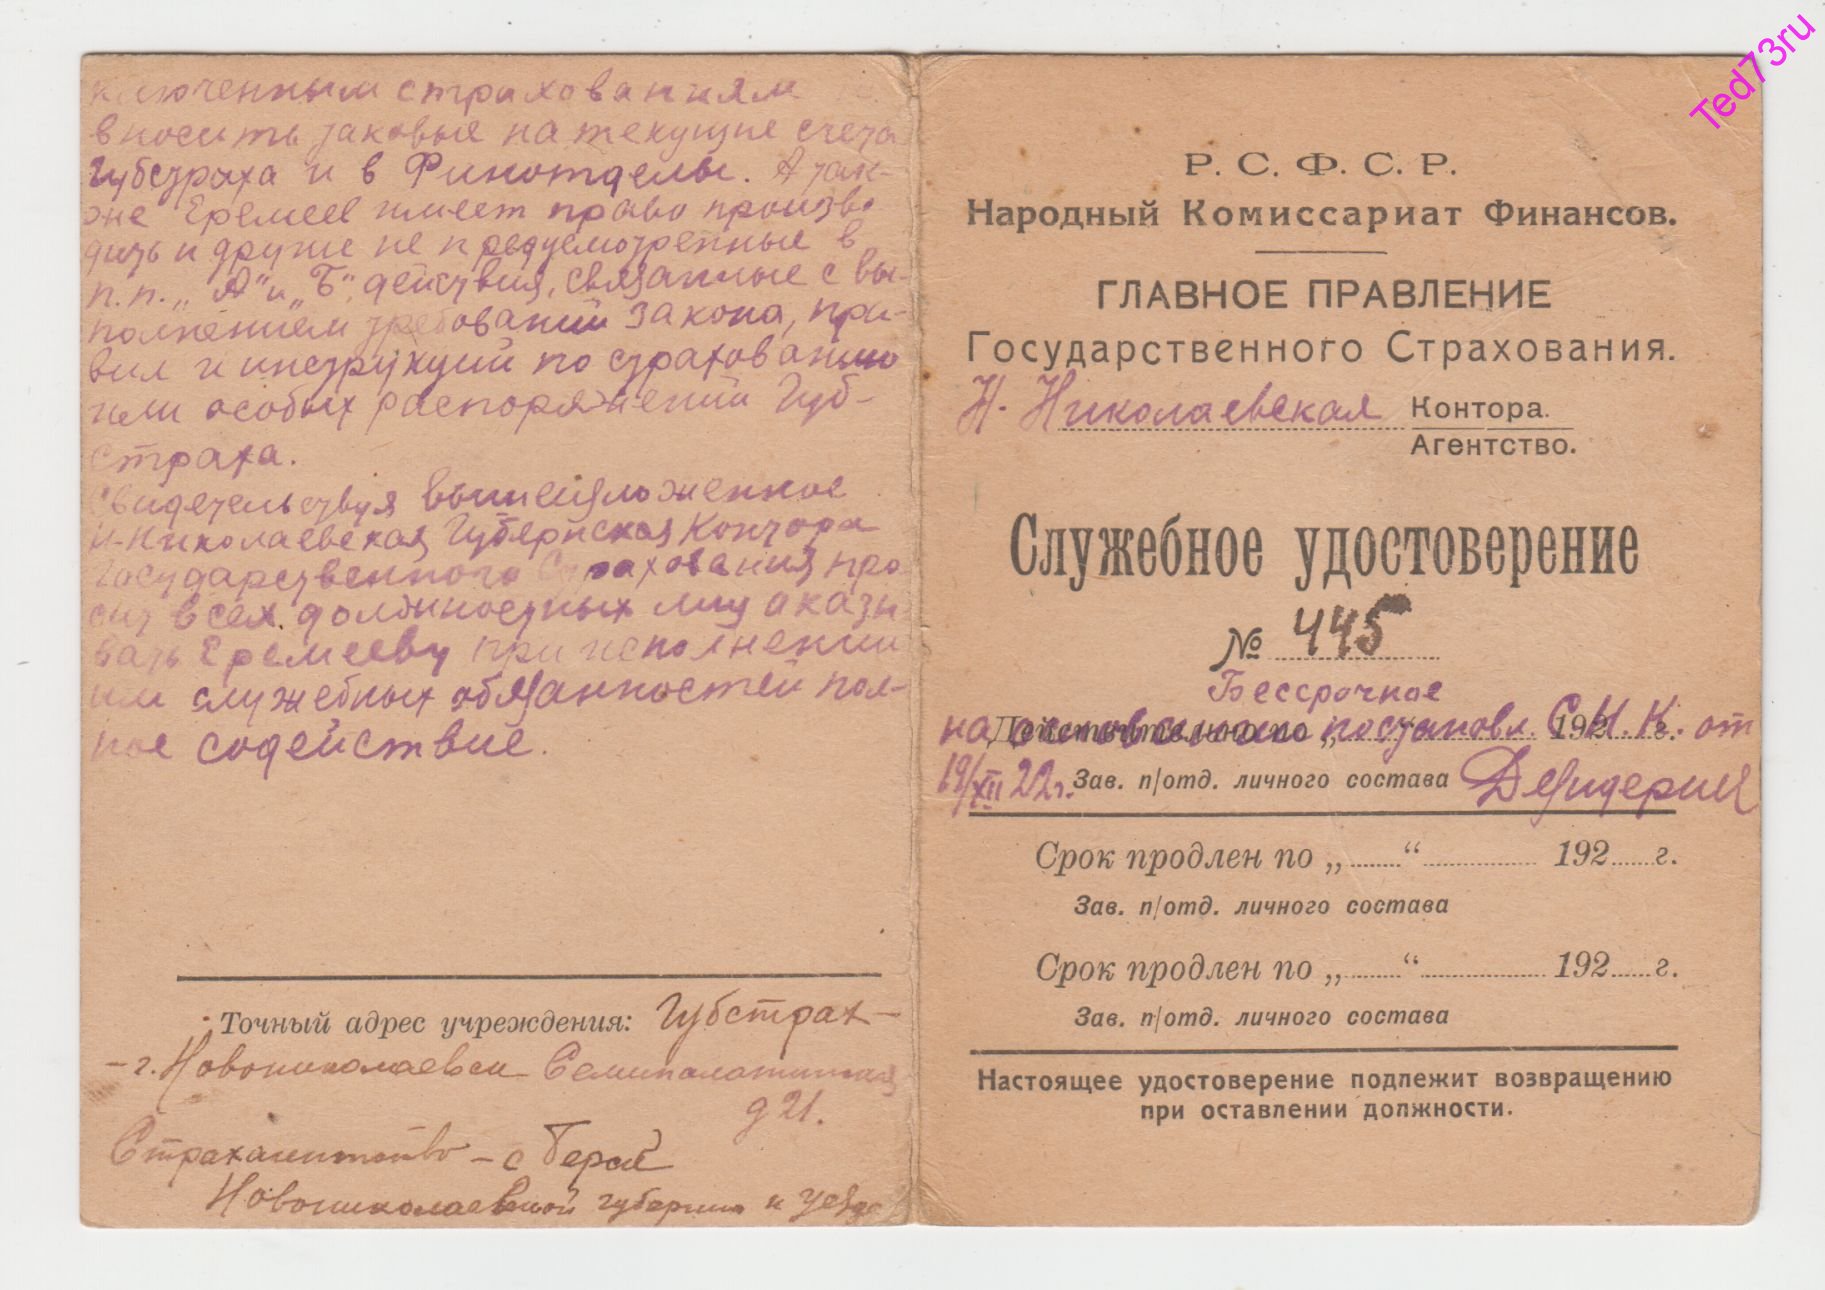 ключенным страхованиям
вносить таковые на текущие счета
Губстраха и в Финотделы. А так-
же Еремеев имеет право произво
дить и другие не предусмотренные в
п.п. „А" и „Б" действия, связанные с вы-
полнением требований закона, пра-
вил и инструкций по страхованию
или особых распоряжений Губ-
страха.
Свидетельствуя вышеизложенное
Н-Николаевская Губернская Контора
Государственного Страхования про
сит всех должностных лиц оказы
вать Еремееву при исполнении
им служебных обязанностей пол-
ное содействие.
Точный адрес учреждения: Губстрах –
– г. Новониколаевск Семипалатинская
д 21.
Страхагентство – с Берск
Новониколаевской губернии и уезда
Р. С. Ф. С. Р.
Народный Комиссариат Финансов.
ГЛАВНОЕ ПРАВЛЕНИЕ
Государственного Страхования.
Н. Николаевская Контора.
Агентство.
Служебное удостоверение
№ 445
Бессрочное
Действительно по „ “ 192 г.
на основании постановл. С.Н.К. от
19/XII 22 г. Зав. п/отд. личного состава
Срок продлен по „ “ 192 г.
Зав. п/отд. личного состава
Срок продлен по „ “ 192 г.
Зав. п/отд. личного состава
Настоящее удостоверение подлежит возвращению
при оставлении должности.
Ted73ru